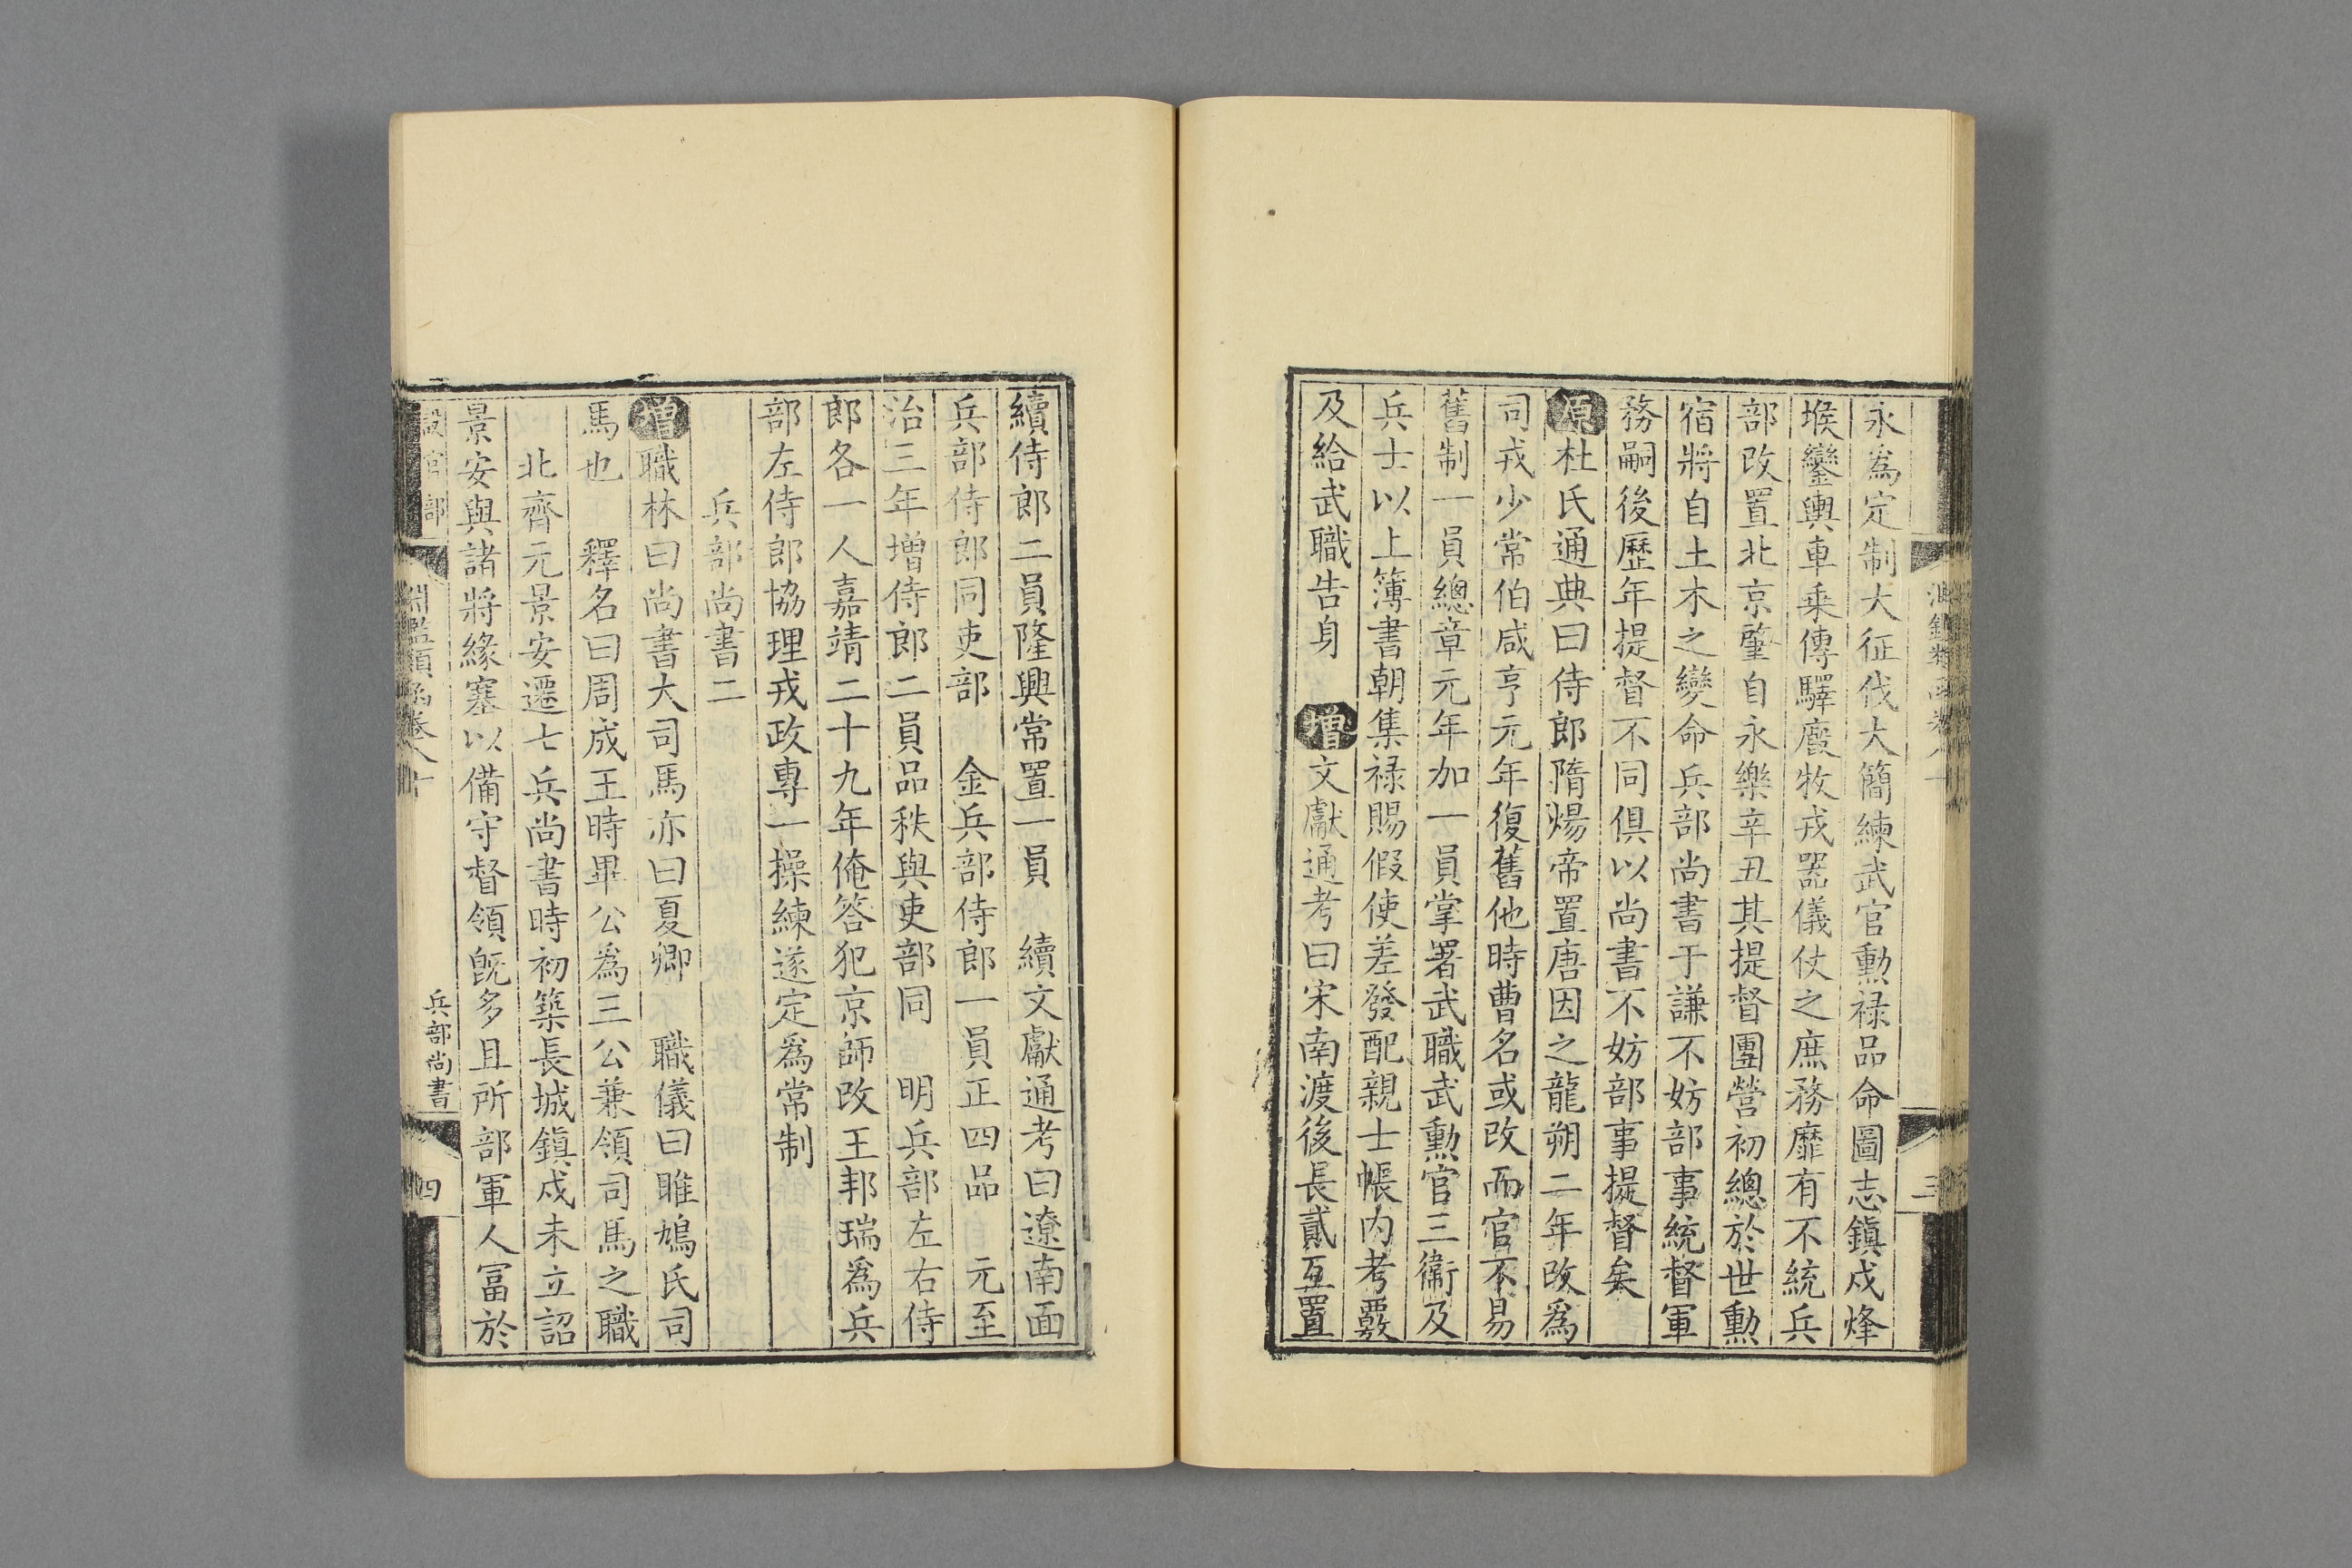 永爲定制大征伐大簡練武官勲禄品命圖志鎭戍烽
堠鑾輿車乘傳驛廐牧戎器儀仗之庶務靡有不統兵
部改置北京肇自永樂辛丑其提督團營初總於世勲
宿將自土木之變命兵部尚書于謙不妨部事統督軍
務嗣後歷年提督不同俱以尚書不妨部事提督矣
原杜氏通典曰侍郎隋煬帝置唐因之龍朔二年改爲
司戎少常伯咸亨元年復舊他時曹名或改而官不易
舊制一員總章元年加一員掌署武職武勲官三衞及
兵士以上簿書朝集禄賜假使差發配親士帳内考覈
及給武職告身 增文獻通考曰宋南渡後長貳互置
三
續侍郎二員隆興常置一員 續文獻通考曰遼南面
兵部侍郎同吏部 金兵部侍郎一員正四品 元至
治三年增侍郎二員品秩與吏部同 明兵部左右侍
郎各一人嘉靖二十九年俺答犯京師改王邦瑞爲兵
部左侍郎協理戎政專一操練遂定爲常制
兵部尚書二
增職林曰尚書大司馬亦曰夏卿 職儀曰雎鳩氏司
馬也 釋名曰周成王時畢公爲三公兼領司馬之職
北齊元景安遷七兵尚書時初築長城鎭戍未立詔
景安與諸將緣塞以備守督領旣多且所部軍人冨於
官部 淵鑑類函卷八十 兵部尚書 四